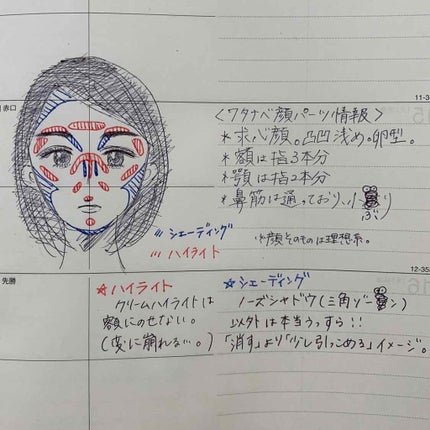 赤口
11-3
<ワタナベ顔パーツ情報>
*求心顔。凸凹浅め。卵型。
*額は指3本分
*顎は指2本分
*鼻筋は通っており、小ぶり
シェーディング
ハイライト
*顔そのものは理想系。
12-35
先勝
☆ハイライト
クリームハイライトは
額にのせない。
☆シェーディング
ノーズシャドウ(三角ゾーン)
以外は本当うっすら!!
「消す」より「少し引っこめる」イメージ。